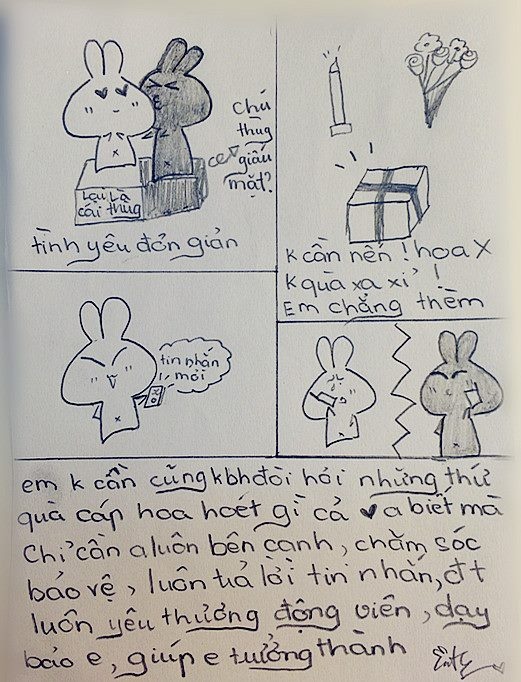 Lại Là
cái thùg
Chú
thùg
giấu
mặt?
tình yêu đơn giản
k cần nến ! hoa X
k quà xa xỉ !
Em chẳng thèm
tin nhắn
mới
em k cần cũng kbh đòi hỏi những thứ
quà cáp hoa hoét gì cả ♥ a biết mà
Chỉ cần a luôn bên cạnh, chăm sóc
bảo vệ, luôn trả lời tin nhắn, đt
luôn yêu thương động viên, dạy
bảo e, giúp e trưởng thành